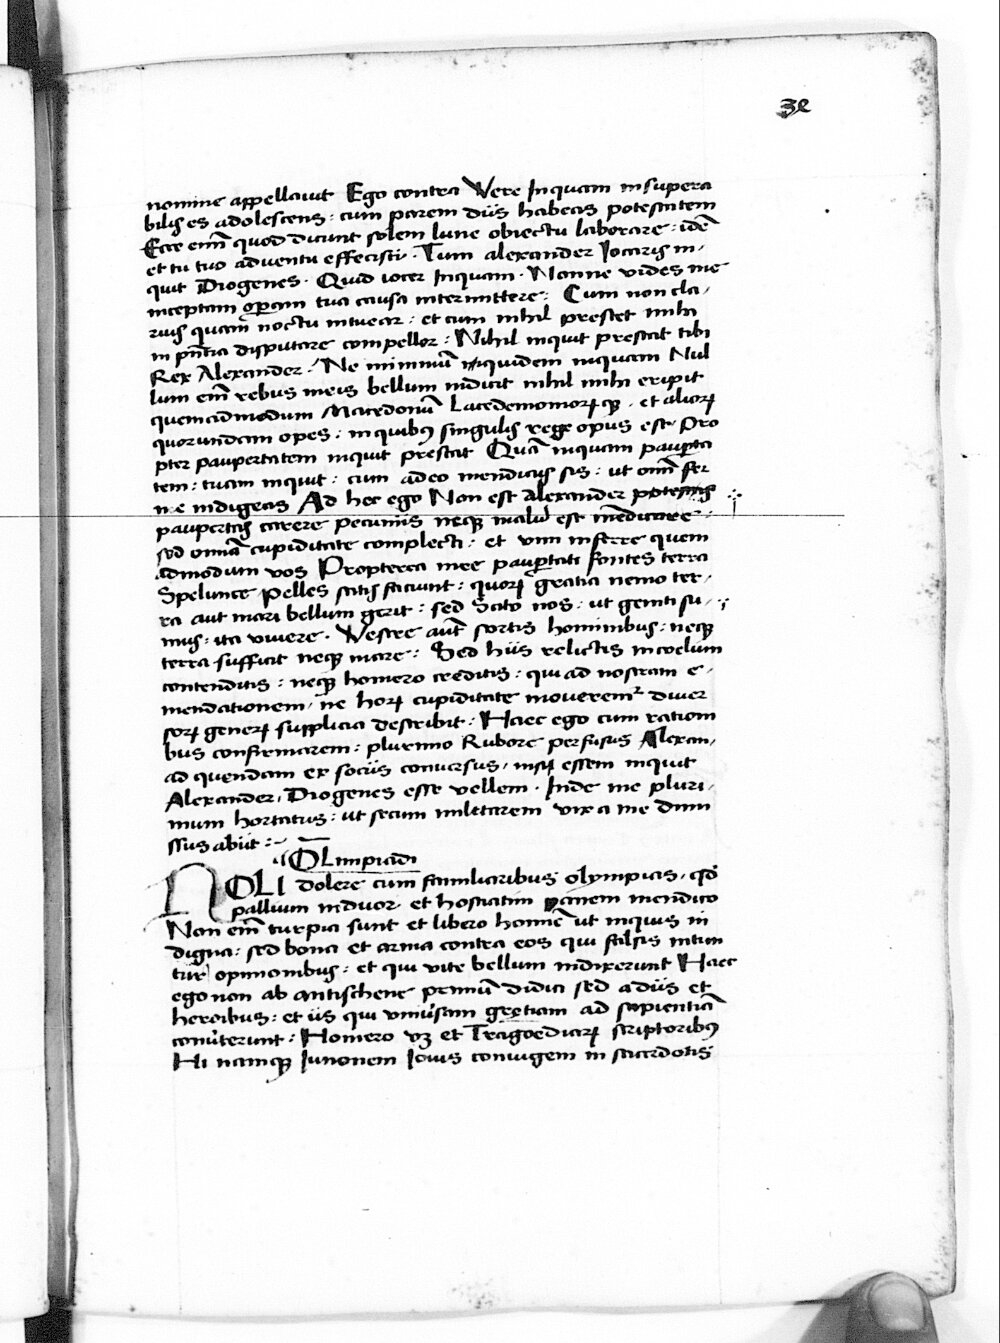 32
nomine appellauit Ego contra Vere Inquam insupera
bilis es adolescens : cum parem diis habeas potestatem
Ecce eni᷒ quod dicunt solem lune obiectu laborare : idē
et tu tuo aduentu effecisti · Tum alexander Iocaris in/
quit Diogenes · Quid iocer Inquam · Nonne vides me
inceptam operam tua causa intermittere : Cum non cla/
rius quam noctu intuear : et cum nihil prestet mihi
in pn̄tia disputare compellor : Nihil inquit prestat tibi
Rex Alexander · Ne minimū quidem inquam Nul
lum eni᷒ rebus meis bellum indicit nihil mihi eripit
quemadmodum Macedonū Lacedemonioꝝ qꝫ · et alioꝝ
quorundam opes : in quibꝰ singulis rege opus est · Pro
pter paupertatem inquit prestat Quā inquam pauꝑta
tem : tuam inquit : cum adeo mendicus sis : ut om̄i fer
me indigeas Ad hec ego Non est alexander
paupertas carere pecuniis neqꝫ malū est mēdicare :
sed omnia cupiditate complecti : et vim inferre quem
admodum vos Propterea mee pauꝑtati fontes terra
Spelunce Pelles satis faciunt : quoꝝ gratia nemo ter/
ra aut mari bellum gerit : sed Scito nos : ut geniti su/
mus : ita vivere · Vestre aūt sortis hominibus : neqꝫ
terra sufficit neqꝫ mare : Sed hiis relictis in coelum
contenditis : neqꝫ homero creditis : qui ad nostram e/
mendationem / ne hoꝝ cupiditate mouerem᷑ diuer
soꝝ generꝝ supplicia describit : Haec ego cum ration
bus confirmarem : plurimo Rubore perfusus Alexan/
ad quendam ex sociis conuersus / nisi essem inquit
Alexander / Diogenes esse vellem · Inde me pluri/
mum hortatus : ut secum militarem vix a me dimi
ssus abiit :~
Olimpiadi
NOLI dolere cum familiaribus olympias / qđ
pallium induor et hostiatim panem mendico
Non eni᷒ turpia sunt et libero homīe ut inquis in
digna : sed bona et arma contra eos qui falsis intun
tur opinionibus : et qui vite bellum indixerunt Haec
ego non ab antischene primū didici sed a diis et
heroibus : et iis qui vniūsam gretiam ad sapientiā
conūterunt : Homero vꝫ et Tragoediaꝝ scriptoribꝰ
Hi namqꝫ Iunonem Iouis coniugem in sacerdotis